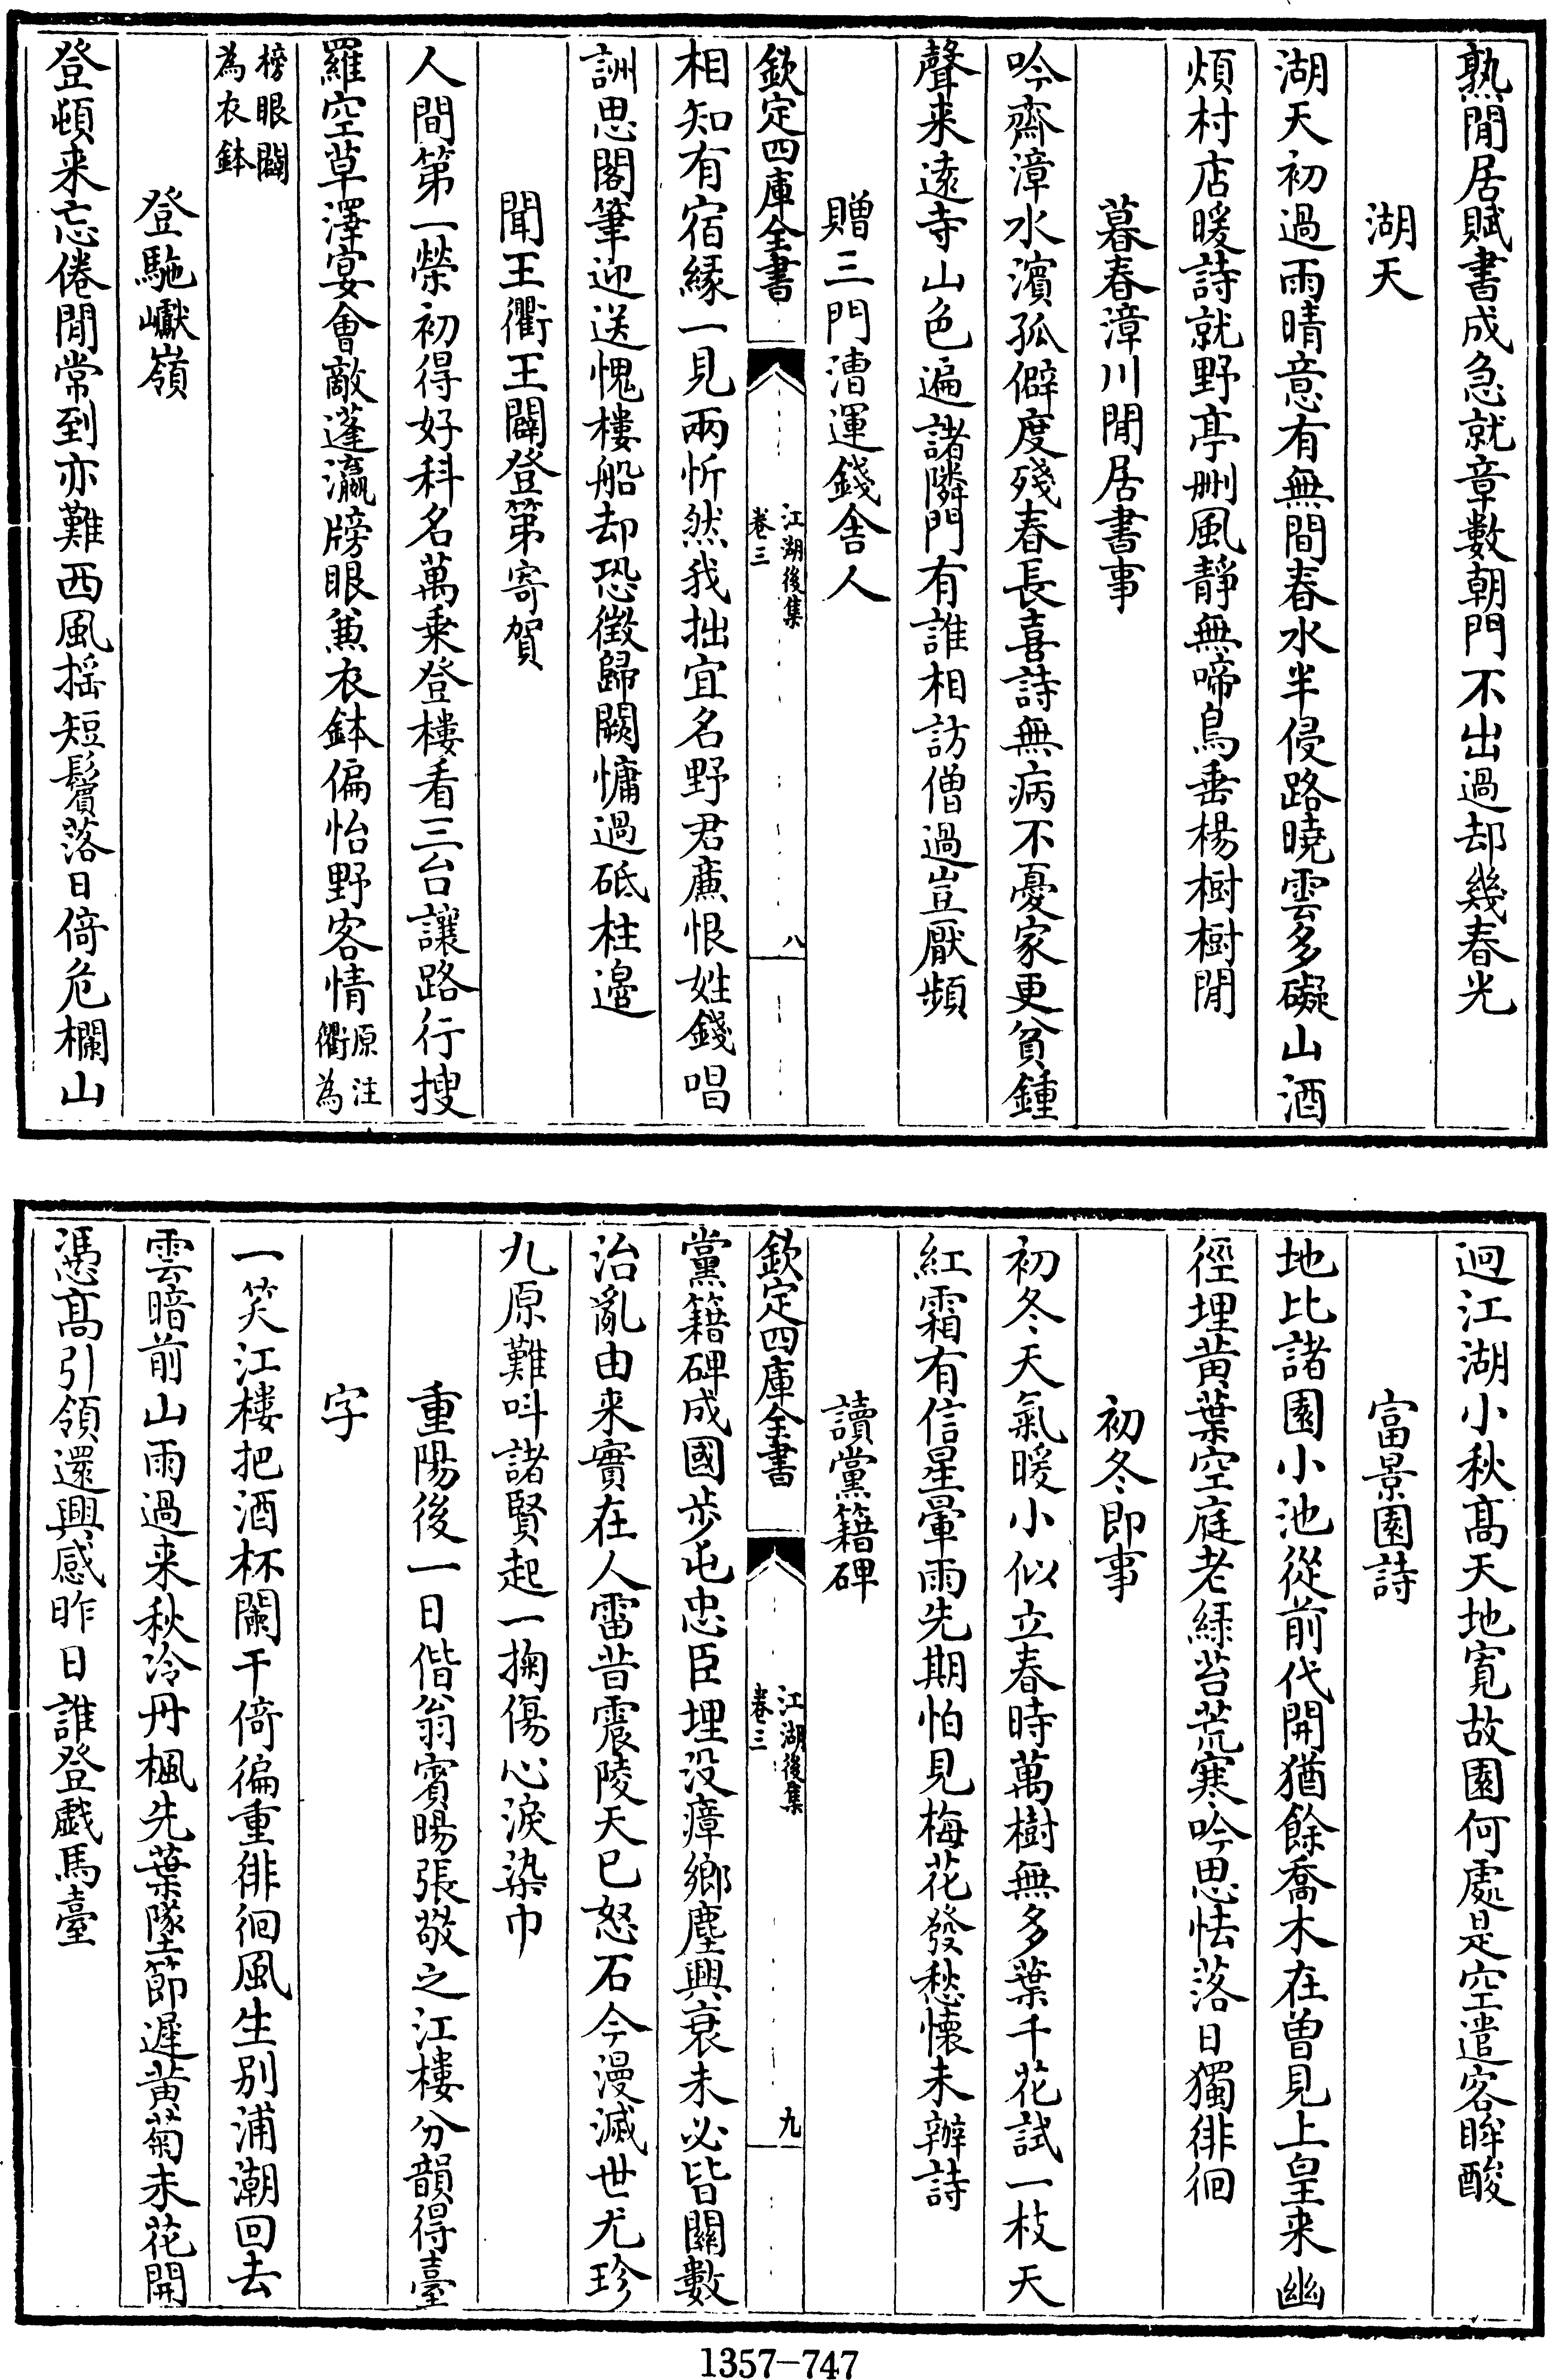 熟閒居賦書成急就章數朝門不出過却幾春光
湖天
湖天初過雨晴意有無間春水半侵路曉雲多礙山酒
煩村店暖詩就野亭刪風靜無啼鳥垂楊樹樹閒
暮春漳川閒居書事
吟齋漳水濱孤僻度殘春長喜詩無病不憂家更貧鍾
聲来遠寺山色遍諸隣門有誰相訪僧過豈厭頻
贈三門漕運錢舍人
欽定四庫全書
江湖後集
卷三
八
相知有宿緣一見兩忻然我拙宜名野君廉恨姓錢唱
詶思閣筆迎送愧樓船却恐徴歸闕慵過砥柱邉
聞王衢王闢登第寄賀
人間第一榮初得好科名萬乗登樓看三台讓路行搜
羅空草澤宴會敵蓬瀛牓眼兼衣鉢偏怡野客情
原注
衢為
榜眼闢
為衣鉢
登馳巘嶺
登頓来忘倦閒常到亦難西風揺短鬢落日倚危欄山
迥江湖小秋髙天地寛故園何處是空遣客眸酸
富景園詩
地比諸園小池從前代開猶餘喬木在曽見上皇来幽
徑埋黄葉空庭老緑苔荒寒吟思怯落日獨徘徊
初冬即事
初冬天氣暖小似立春時萬樹無多葉千花試一枝天
紅霜有信星暈雨先期怕見梅花發愁懷未辦詩
讀黨籍碑
欽定四庫全書
江湖後集
卷三
九
黨籍碑成國步屯忠臣埋没瘴鄉塵興衰未必皆關數
治亂由来實在人雷昔震陵天已怒石今漫滅世尤珍
九原難呌諸賢起一掬傷心淚染巾
重陽後一日偕翁賓暘張敬之江樓分韻得臺
字
一笑江樓把酒杯闌干倚徧重徘徊風生别浦潮回去
雲暗前山雨過来秋冷丹楓先葉墜節遲黄菊未花開
憑髙引領還興感昨日誰登戯馬臺
1357-747